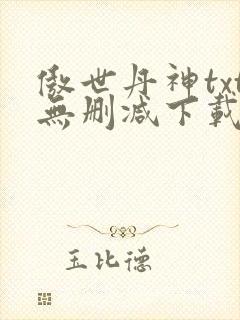 傲世丹神txt
無删减下載
玉比德